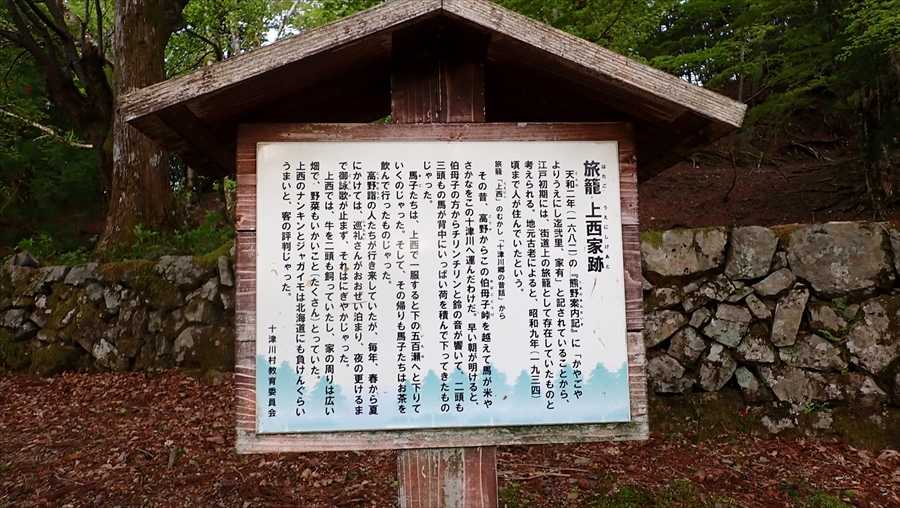 旅籠 上西家跡
はたご うえにしけあと
天和二年(一六八二)の『熊野案内記』に「かやごや
よりうえにし迄弐里、家有」と記されていることから、
江戸初期には、街道上の旅籠として存在していたものと
考えられる。地元古老によると、昭和九年(一九三四)
頃まで人が住んでいたという。
旅籠「上西」のむかし「十津川郷の昔話」から
その昔、高野からこの伯母子峠を越えて馬が米や
さかなをこの十津川へ運んだわけだ。早い朝が明けると、
伯母子の方からチリンチリンと鈴の音が響いて、二頭も
三頭もの馬が背中にいっぱい荷を積んで下ってきたもの
じゃった。
馬子たちは、上西で一服すると下の五百瀬へと下りて
いくのじゃった。そして、その帰りも馬子たちはお茶を
飲んで行ったものじゃった。
高野詣の人たちが行き来していたが、毎年、春から夏
にかけては、巡礼さんがおおぜい泊まり、夜の更けるま
で御詠歌が止まず、それはにぎやかじゃった。
上西では、牛を二頭も飼っていたし、家の周りは広い
畑で、野菜もいかいこと(たくさん)とっていた。
上西のナンキンとジャガイモは北海道にも負けんぐらい
うまいと、客の評判じゃった。
十津川村教育委員会